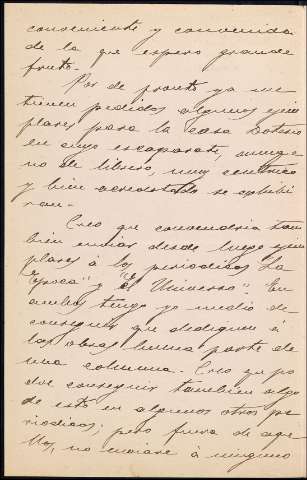 conveniente y convenida
de la que espero grande
fruto.
Por de pronto ya me
tienen pedidos algunos ejem
plares para la casa Dotesio
en cuyo escaparate, aunque
no de librero, muy centrico
y bien acreditado se exhibi
ran.
Creo que convendria tam
bien enviar desde luego ejem
plares á los periodicos La
"Epoca" y "El Universo". En
ambos tengo yo medio de
conseguir que dediquen á
las obras buena parte de
una columna. Creo que po
dré conseguir tambien algo
de esto en algunos otros pe
riodicos; pero fuera de aque
llos, no enviaré á ninguno